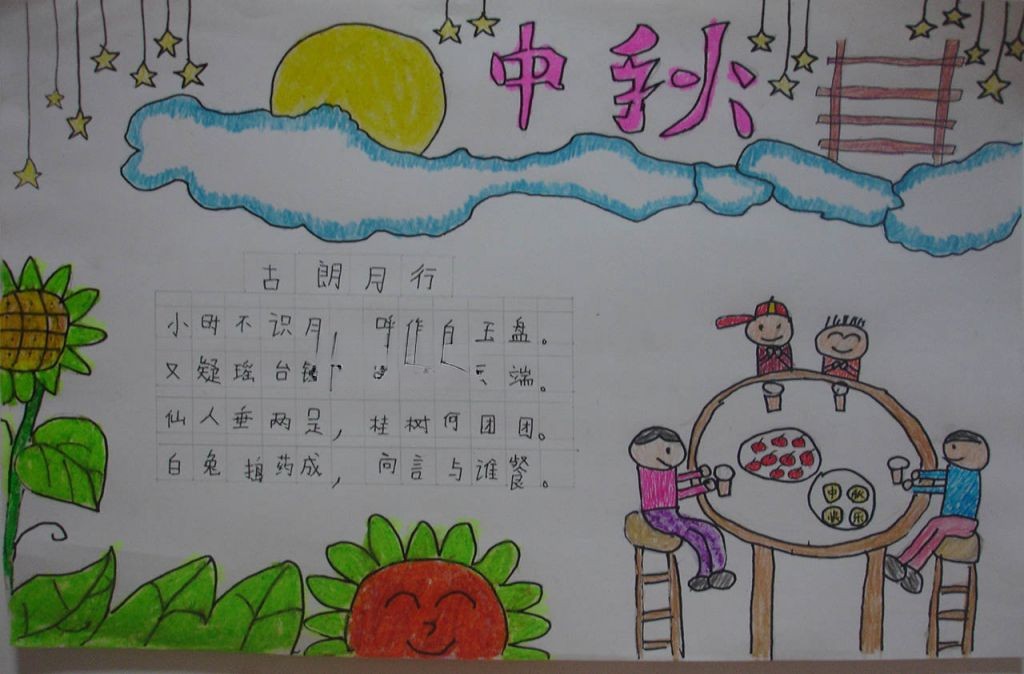 中秋
古朗月行
小时不识月,呼作白玉盘。
又疑瑶台镜, 端。
仙人垂两足,桂树何团团。
白兔捣药成,向言与谁餐。
中秋
快乐